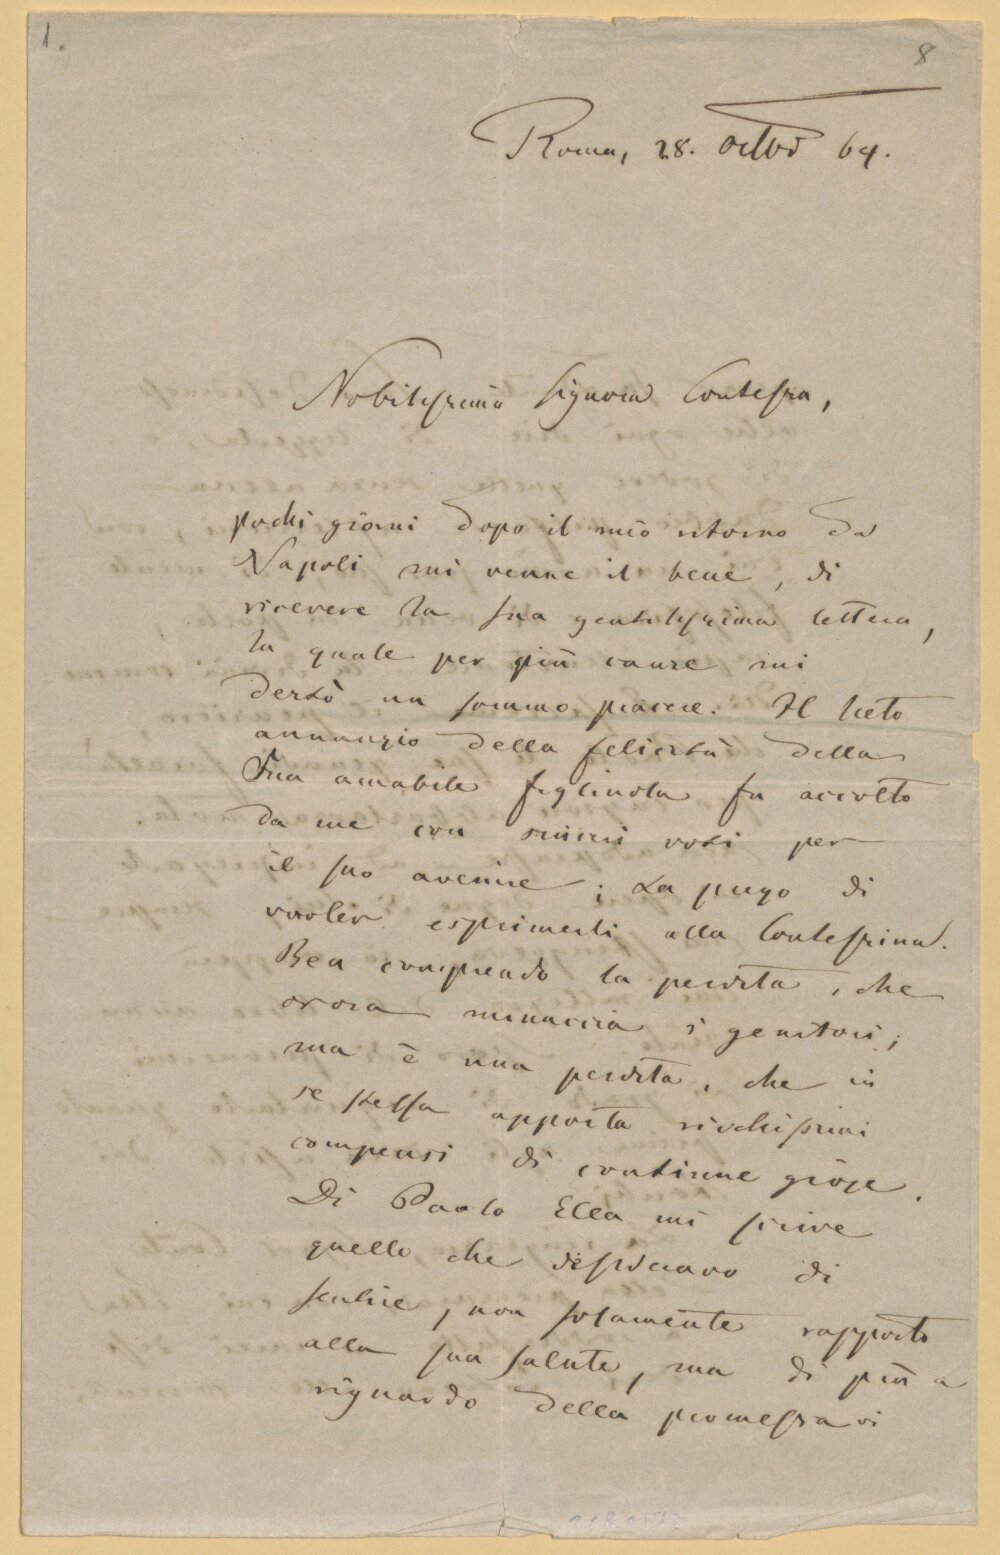 1.
8
Roma, 28. Octbr 64.
Nobilissima Signora Contessa,
pochi giorni dopo il mio ritorno da
Napoli mi venne il bene, di
ricevere la sua gentilissima lettera,
la quale per più cause mi
destò un sommo piacere. Il lieto
annunzio della felicità della
Sua amabile figliuola fu accolto
da me con sinceri voti per
il suo avenire; La prego di
volerli esprimerli alla Contessina.
Ben comprendo la perdita, che
ovora minaccia i genitori;
ma è una perdita, che in
se stessa apporta ricchissimi
compensi di continue gioje.
Di Paolo Ella mi scrive
quello che desideravo di
sentire, non solamente rapporto
alla sua salute, ma di più a
riguardo della promessa di